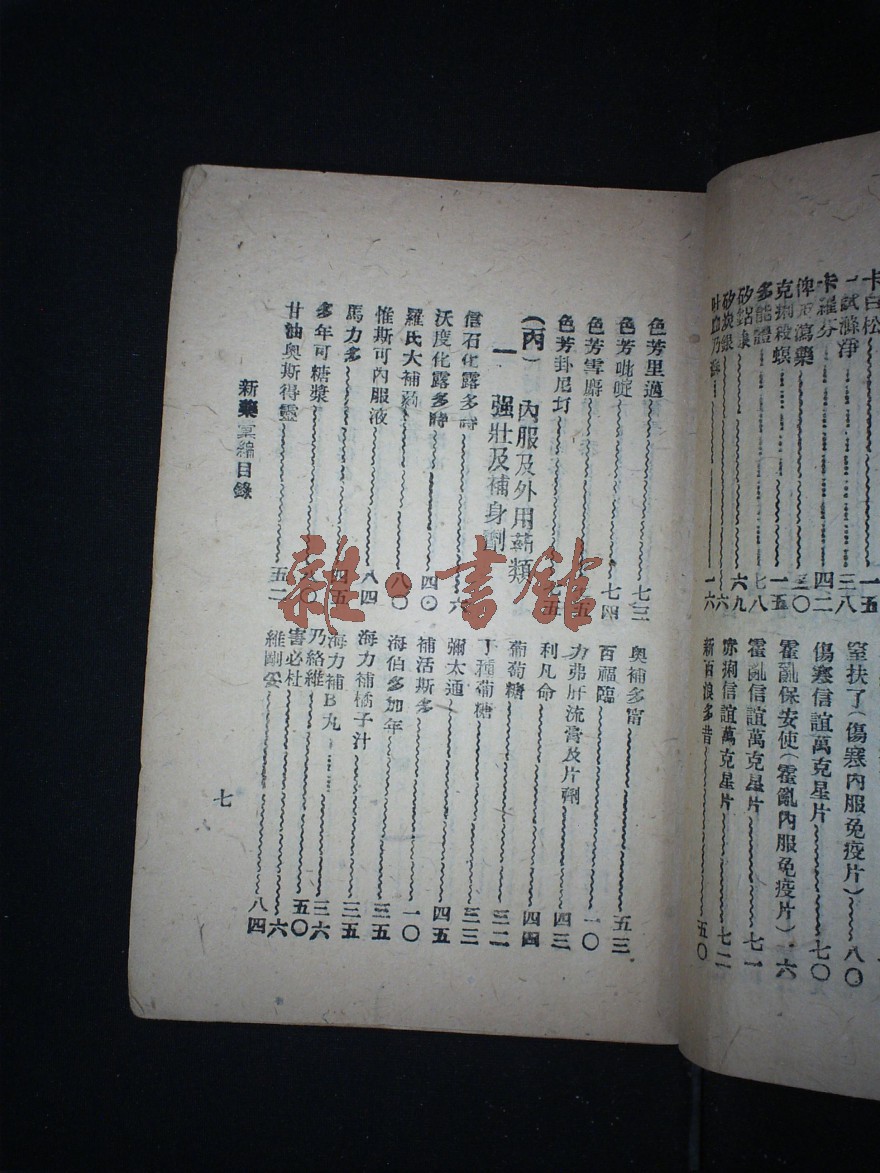 卡白松 一五
試滌淨 三八
卡羅芬 四二
瀉藥 三〇
克痢殺蟆 一五
多能體 七八
矽鋁 六九
矽炭銀 六
一六
窒扶了(傷寒內服免疫片) 八〇
傷寒信誼萬克星片 七〇
霍亂保安使(霍亂內服免疫片) 一六
霍亂信誼萬克星片 七一
赤痢信誼萬克星片 七二
五〇
色芳里邁 七三
色芳吡啶 七四
色芳雪麝
色芳卦尼汀
(丙) 內服及外用藥類
一 强壯及補身劑
信石化露多時 六
沃度化露多時 四〇
羅氏大補 八〇
惟斯可內服液 八四
馬力多 四五
多年可糖漿
甘油奧斯得靈 五二
奧補多甯 五三
百福臨 一〇
力弗肝流膏及片劑 四三
利凡命 四四
葡萄糖 三二
丁種葡糖 三三
彌太通 四五
補活斯多 一〇
海伯多加年 三五
海力補橘子汁 三五
海力補B丸 三六
乃絡維 五〇
害必杜 六
維剛妥 八四
新藥彙編目錄
七
雜·書館